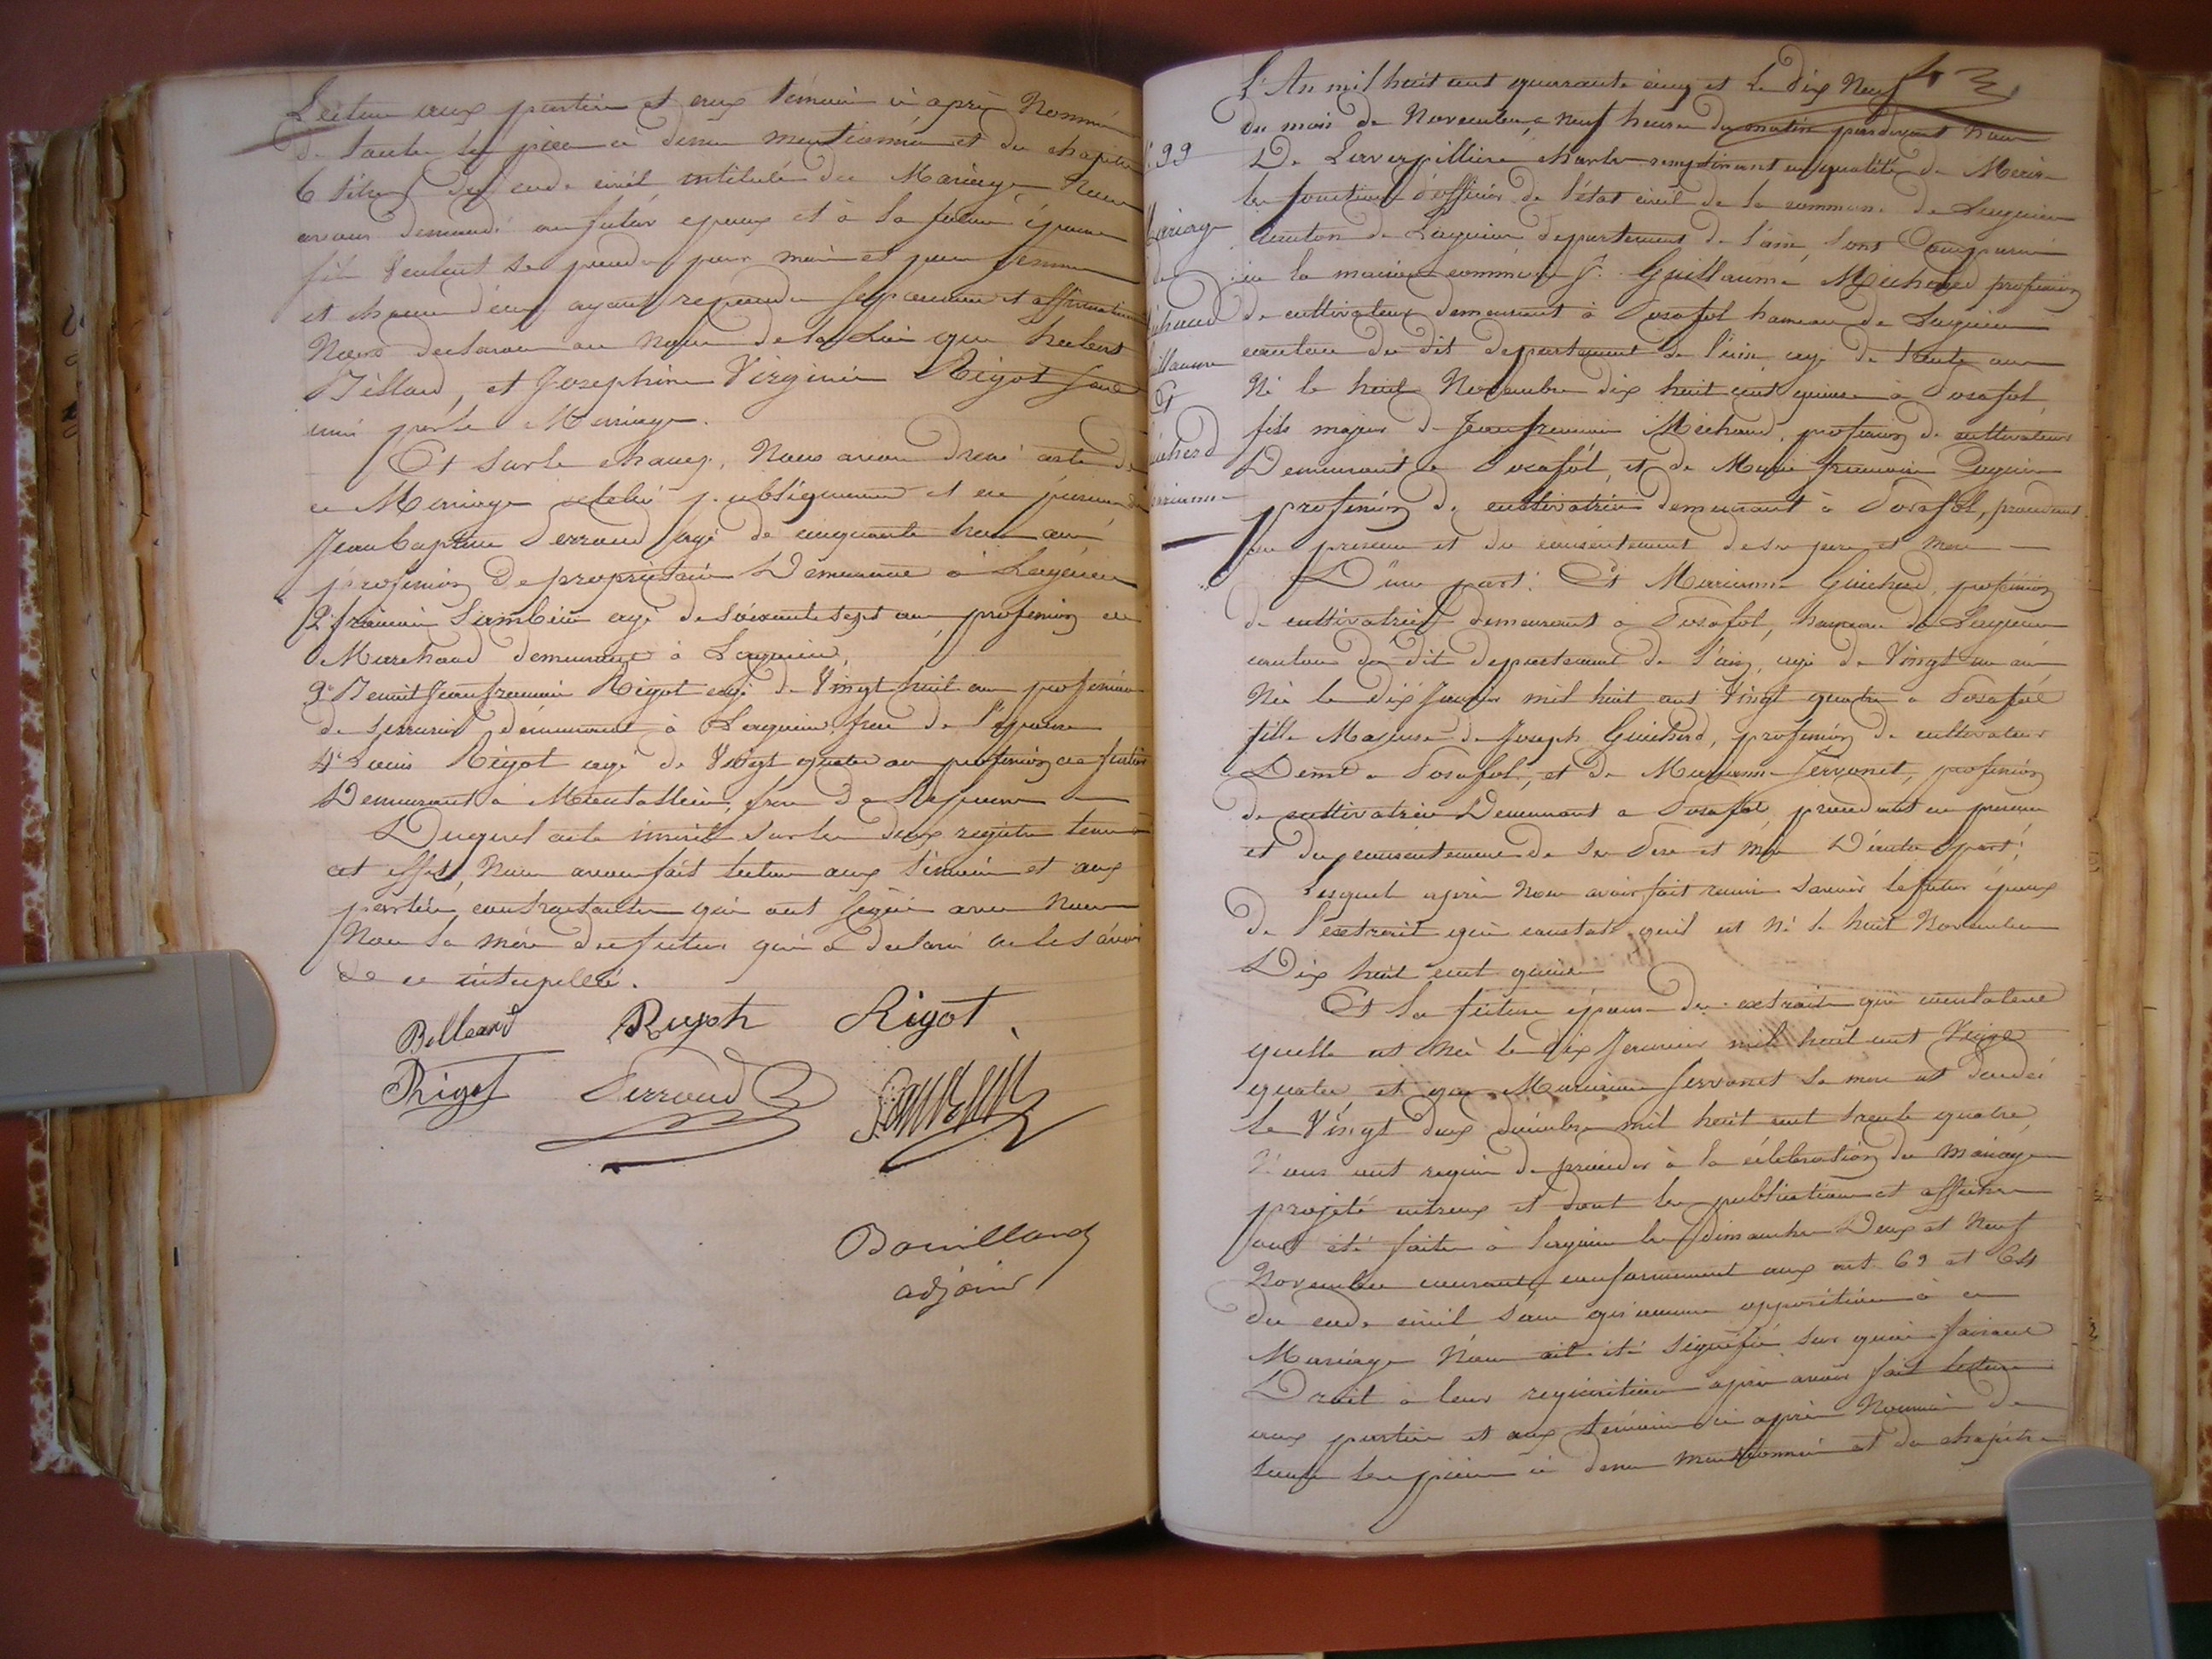 Lecture aux parties et aux témoins ci après Nommés
de toutes les pièces ci dessus mentionnées et du chapitre
6 titre du code civil intitulé du Mariage, Nous
avons demandé au futur epoux et à la future épouse
s'ils veulent se prendre pour mari et pour femme
et chacun d'eux ayant repondu separement et affirmativement
Nous declarons au Nom de la Loi que
Billand, et Josephine Virginie Rigot sont
unis par le Mariage.
Et sur le champ, Nous avons dressé acte de
ce Mariage celebré publiquement et en presence de
Jean Baptiste Perroud agé de cinquante huit ans
profession de propriétaire Demeurant à Lagnieu
2° françois agé de soixante sept ans, profession de
Marchand demeurant à Lagnieu,
3° Benoit Jean françois Rigot agé de Vingt huit ans profession
de serrurier demeurant à Lagnieu, frere de l'épouse
4° Louis Rigot agé de Vingt quatre ans profession de
Demeurant à Montalieu, frere de l'epouse
Duquel acte inscrit sur les deux registres tenus à
cet effet, Nous avons fait lecture aux témoins et aux
parties contractantes qui ont signé avec Nous
Non la mère du futur qui a declaré ne les avoir
de ce interpellé.
Rigot
Rigot Perroud
Bouilland
adjoint
L'An mil huit cent quarante cinq et Le dix Neuf
du mois de Novembre, à neuf heures du matin pardevant Nous
99
De Laverpillière charles remplissant en qualité de Maire
les fonctions d'officier de l'état civil de la commune de Lagnieu
Mariage
canton de Lagnieu departement de l'ain, sont Comparus
de
en la maison commune Guillaume Michaud profession
Michaud
de cultivateur demeurant à Posafol hameau de Lagnieu
Guillaume
canton du dit departement de l'ain agé de trente ans
Et
Né le huit Novembre dix huit cent quinze à Posafol
fils majeur de Jean francois Michaud, profession de cultivateur
Guicherd
Demeurant à Posafol, et de Marie francoise
Marianne
profession de cultivatrice demeurant à Posafol, procedant
en presence et du consentement de ses pere et mere
D'une part. Et Marianne Guicherd, profession
de cultivatrice demeurant à Posafol, hameau de Lagnieu
canton du dit departement de l'ain, agé de Vingt un an
Née le dix Janvier mil huit cent Vingt quatre à Posafol
fille Majeure de Joseph Guicherd, profession de cultivateur
Demt à Posafol, et de Marianne Servonet, profession
de cultivatrice Demeurant à Posafol, procedant en presence
et du consentement de ses Pere et mère D'autre part;
Lesquels après Nous avoir fait remis savoir le futur époux
De l'extrait qui constate qu'il est Né le huit Novembre
Dix huit cent quinze
Et la future épouse de extrait qui constatent
quelle est Née le dix Janvier mil huit cent Vingt
quatre et que Marianne Servonet sa mere est decedée
le Vingt deux décembre mil huit cent trente quatre,
Nous ont requis de proceder à la célébration du Mariage
projeté entreux et dont les publications et affiches
ont été faites à Lagnieu les dimanches Deux et Neuf
Novembre courant, conformement aux art 63 et 64
du code civil sans qu'aucune opposition à ce
Mariage Nous ait été signifié sur quoi faisant
Droit à leur requisition après avoir fait lecture
aux parties et aux témoins ci après Nommés de
toutes les pièces ci dessus mentionnées et du chapitre